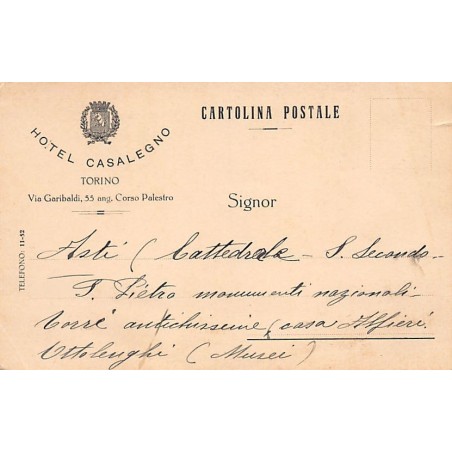 HOTEL CASALEGNO
TORINO
Via Garibaldi, 55 ang. Corso Palestro
TELEFONO: 11-52
CARTOLINA POSTALE
Signor
Asti (Cattedrale - S. Secondo -
S. Pietro monumenti nazionali -
torri antichissime, casa Alfieri.
Ottolenghi (Musei)